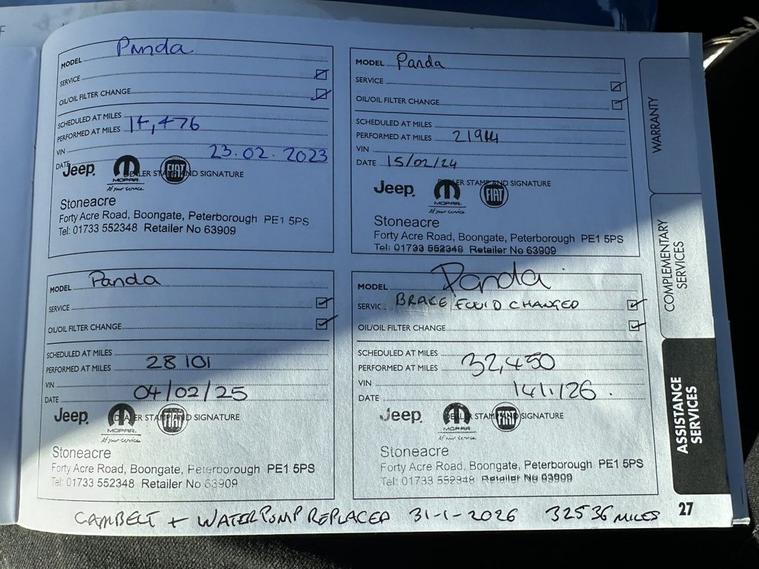 MODEL Panda
SERVICE
OIL/OIL FILTER CHANGE
SCHEDULED AT MILES
PERFORMED AT MILES 14,476
VIN
DATE 23.02.2023
Jeep MOPAR FIAT
DEALER STAMP AND SIGNATURE
Stoneacre
Forty Acre Road, Boongate, Peterborough PE1 5PS
Tel: 01733 552348 Retailer No 63909
MODEL Panda
SERVICE
OIL/OIL FILTER CHANGE
SCHEDULED AT MILES
PERFORMED AT MILES
VIN
DATE 15/02/24
Jeep MOPAR FIAT
DEALER STAMP AND SIGNATURE
Stoneacre
Forty Acre Road, Boongate, Peterborough PE1 5PS
Tel: 01733 552348 Retailer No 63909
MODEL Panda
SERVICE
OIL/OIL FILTER CHANGE
SCHEDULED AT MILES
PERFORMED AT MILES 28101
VIN
DATE 04/02/25
Jeep MOPAR FIAT
DEALER STAMP AND SIGNATURE
Stoneacre
Forty Acre Road, Boongate, Peterborough PE1 5PS
Tel: 01733 552348 Retailer No 63909
MODEL Panda
SERVICE BRAKE FLUID CHANGED
OIL/OIL FILTER CHANGE
SCHEDULED AT MILES
PERFORMED AT MILES 32,450
VIN
DATE 14/1/26.
Jeep MOPAR FIAT
DEALER STAMP AND SIGNATURE
Stoneacre
Forty Acre Road, Boongate, Peterborough PE1 5PS
Tel: 01733 552348 Retailer No 63909
CAMBELT + WATERPUMP REPLACED 31-1-2026 32536 MILES
WARRANTY
COMPLEMENTARY
SERVICES
ASSISTANCE
SERVICES
27